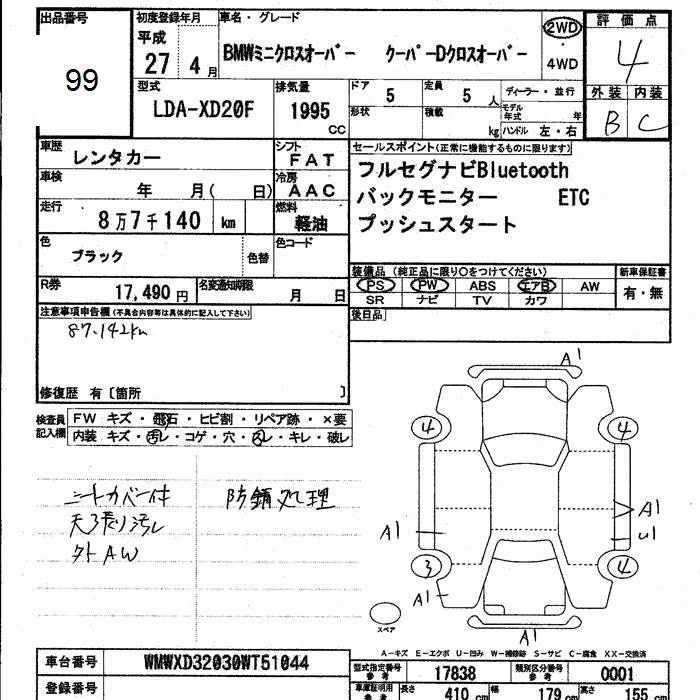 出品番号
99
初度登録年月
平成
27 4 月
車名・グレード
BMWミニクロスオーバー クーパーDクロスオーバー
2WD
・
4WD
評価点
4
外装 内装
B C
型式
LDA-XD20F
排気量
1995
CC
ドア
5
定員
5 人
形状
積載
kg
ディーラー・並行
モデル年式 年
ハンドル 左・右
車歴
レンタカー
シフト
FAT
車検
年 月( 日)
冷房
AAC
走行
8万7千140 km
燃料
軽油
色
ブラック
色替
色コード
R券
17,490 円
名変通知期限
月 日
セールスポイント(正常に機能するものに限ります)
フルセグナビBluetooth
バックモニター ETC
プッシュスタート
装備品 (純正品に限り○をつけてください)
PS PW ABS エアB AW
SR ナビ TV カワ
新車保証書
有・無
後日品
注意事項申告欄(不具合内容等は具体的に記入して下さい)
87.142km
修復歴 有〔箇所 〕
検査員
記入欄
FW キズ・飛石・ヒビ割・リペア跡・×要
内装 キズ・汚レ・コゲ・穴・スレ・キレ・破レ
シートカバー付 防錆処理
天張り汚レ
外AW
A1
4 4
A1
A1 U1
3 4
A1
A1
スペア
A-キズ E-エクボ U-凹み W-補修跡 S-サビ C-腐食 XX-交換済
車台番号
WMWXD32030WT51044
登録番号
型式指定番号
参考
17838
類別区分番号
参考
0001
車庫証明用
参考
長さ
410 cm
幅
179 cm
高さ
155 cm